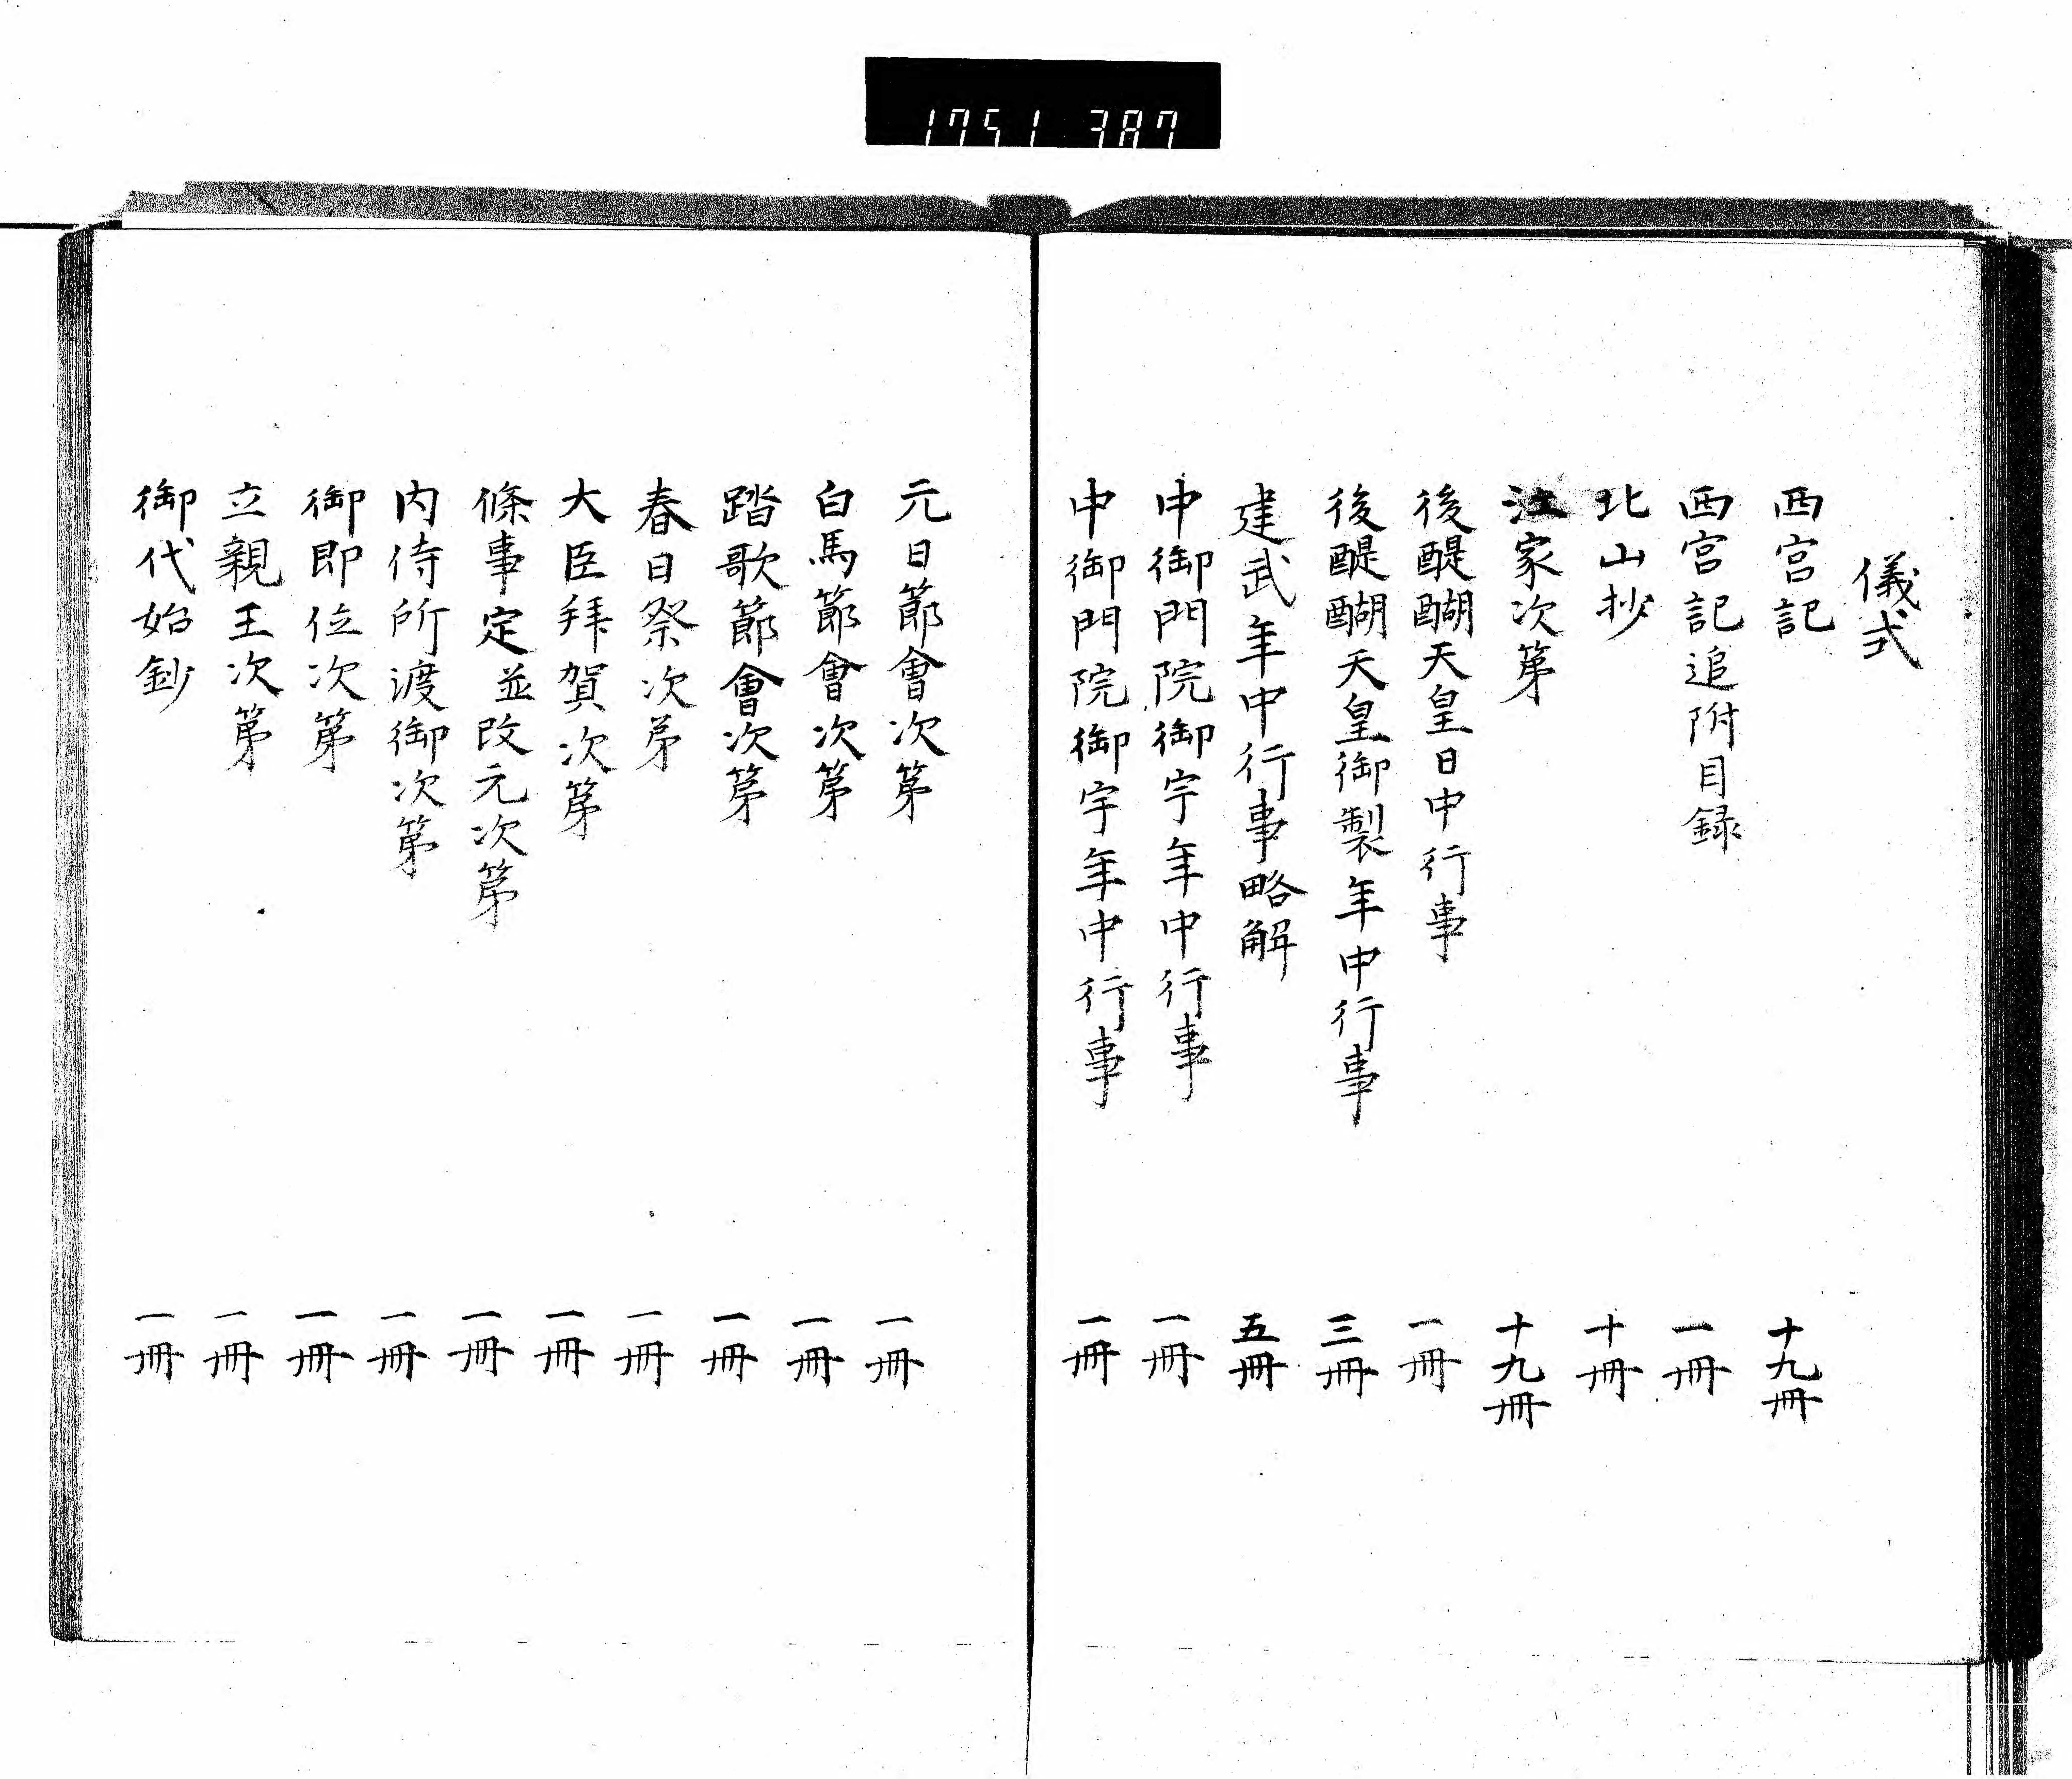 1751 387
儀式
西宮記 十九冊
西宮記追附目録 一冊
北山抄 十冊
江家次第 十九冊
後醍醐天皇日中行事 一冊
後醍醐天皇御製年中行事 三冊
建武年中行事略解 五冊
中御門院御宇年中行事 一冊
中御門院御宇年中行事 一冊
元日節會次第 一冊
白馬節會次第 一冊
踏歌節會次第 一冊
春日祭次第 一冊
大臣拜賀次第 一冊
條事定並改元次第 一冊
内侍所渡御次第 一冊
御即位次第 一冊
立親王次第 一冊
御代始鈔 一冊